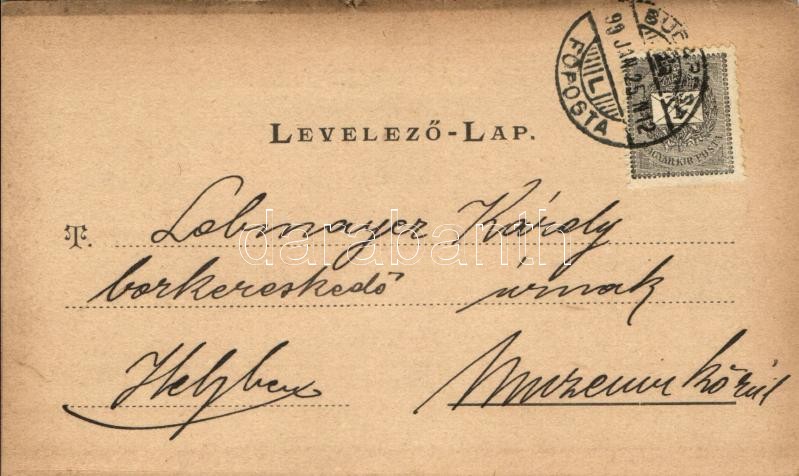 BUDAPEST
99 JAN. 25. N12
L
FŐPOSTA
LEVELEZŐ-LAP.
MAGYAR KIR. POSTA
T. Lobmayer Károly
darabanth
borkereskedő úrnak
Helyben Muzeum körút